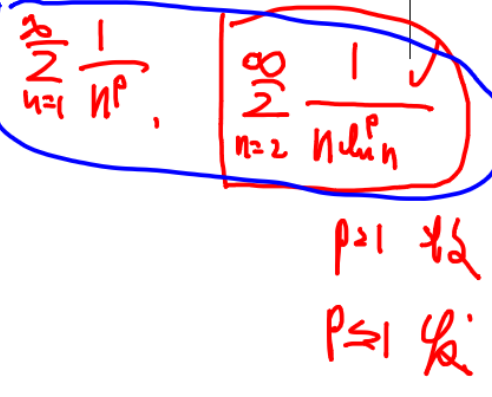 ∞∑n=1 1/n^p , ∞∑n=2 1/(n ln^p n) ✓
p>1 收
p≤1 发